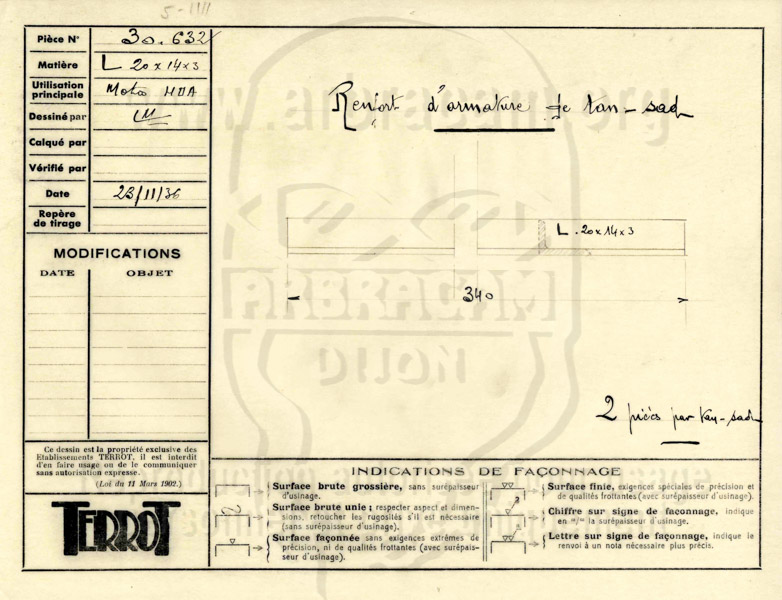 5-1111
Pièce N° 30.632
Matière L 20 x 14 x 3
Utilisation principale Moto HDA
Dessiné par LM
Calqué par
Vérifié par
Date 23/11/36
Repère de tirage
MODIFICATIONS
DATE OBJET
Ce dessin est la propriété exclusive des
Etablissements TERROT, il est interdit
d'en faire usage ou de le communiquer
sans autorisation expresse.
(Loi du 11 Mars 1902.)
TERROT
Renfort d'armature de tan-sad
L. 20 x 14 x 3
340
2 pièces par tan-sad
ARBRACAM
DIJON
INDICATIONS DE FAÇONNAGE
Surface brute grossière, sans surépaisseur
d'usinage.
Surface brute unie; respecter aspect et dimen-
sions, retoucher les rugosités s'il est nécessaire
(sans surépaisseur d'usinage).
Surface façonnée sans exigences extrêmes de
précision, ni de qualités frottantes (avec surépais-
seur d'usinage).
Surface finie, exigences spéciales de précision et
de qualités frottantes (avec surépaisseur d'usinage).
Chiffre sur signe de façonnage, indique
en m/m la surépaisseur d'usinage.
Lettre sur signe de façonnage, indique le
renvoi à un nota nécessaire plus précis.